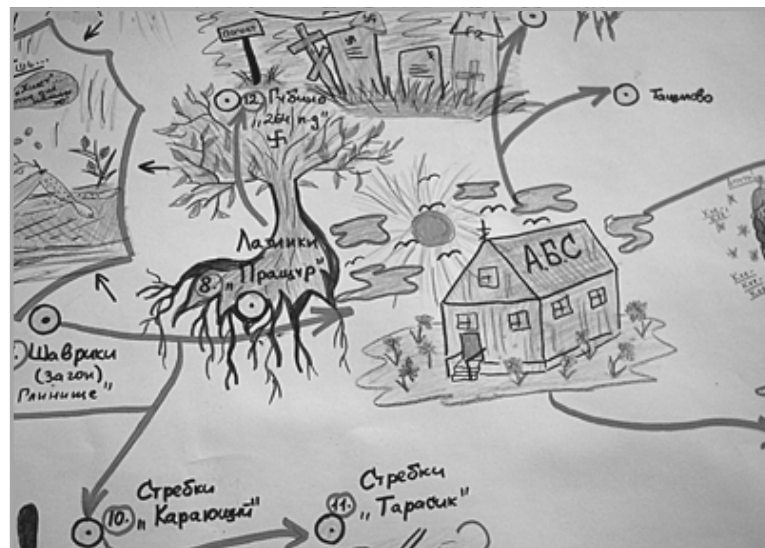 12. Губино
„264 п.д"
Ташлово
АБС
Лазинки
8. „Пращур"
Шаврики
(загон)
Глинище"
Стребки
10. „Карающий"
Стребки
11. „Тарасик"